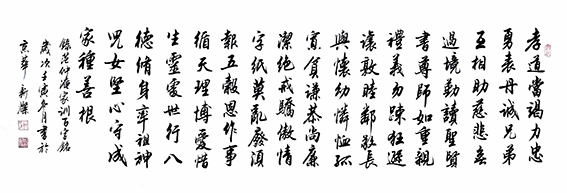 孝道當竭力忠
勇表丹誠兄弟
互相助慈悲無
過境勤讀聖賢
書尊師如重親
禮義勿疎狂遜
讓敦睦鄰敬長
與懷幼憐恤孤
寡貧謙恭尚廉
潔絕戒驕傲情
字紙莫亂廢須
報五穀恩作事
循天理博愛惜
生靈處世行八
德脩身率祖神
兒女堅心守成
家種善根
錄范仲淹家訓百字銘
歲次壬寅冬月書於
京華 新傑